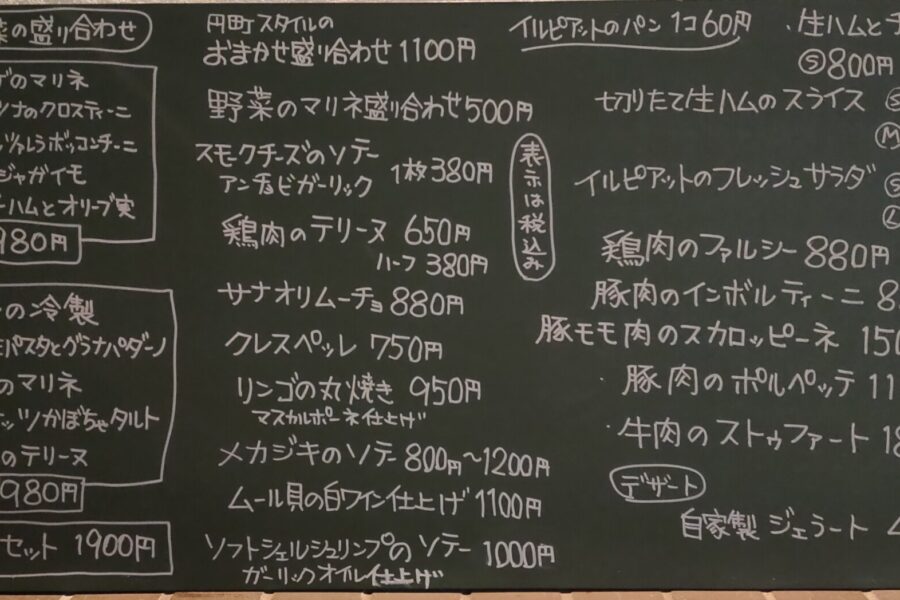 菜の盛り合わせ
のマリネ
ツナのクロスティーニ
ッツァレラボッコンチーニ
ジャガイモ
ハムとオリーブ実
980円
の冷製
パスタとグラナパダーノ
のマリネ
かぼちゃタルト
のテリーヌ
980円
セット 1900円
円町スタイルの
おまかせ盛り合わせ 1100円
野菜のマリネ盛り合わせ 500円
スモークチーズのソテー
アンチョビガーリック 1枚 380円
鶏肉のテリーヌ 650円
ハーフ 380円
サナオリムーチョ 880円
クレスペッレ 750円
リンゴの丸焼き 950円
マスカルポーネ仕上げ
メカジキのソテー 800円〜1200円
ムール貝の白ワイン仕上げ 1100円
ソフトシェルシュリンプのソテー 1000円
ガーリックオイル仕上げ
表示は税込み
イルピアットのパン 1コ 60円
・生ハムと
Ⓢ800円
切りたて!生ハムのスライス Ⓢ
Ⓜ
イルピアットのフレッシュサラダ Ⓢ
Ⓛ
鶏肉のファルシー 880円
豚肉のインボルティーニ 8
豚モモ肉のスカロッピーネ 150
・豚肉のポルペッテ 11
・牛肉のストゥファート 18
デザート
自家製ジェラート